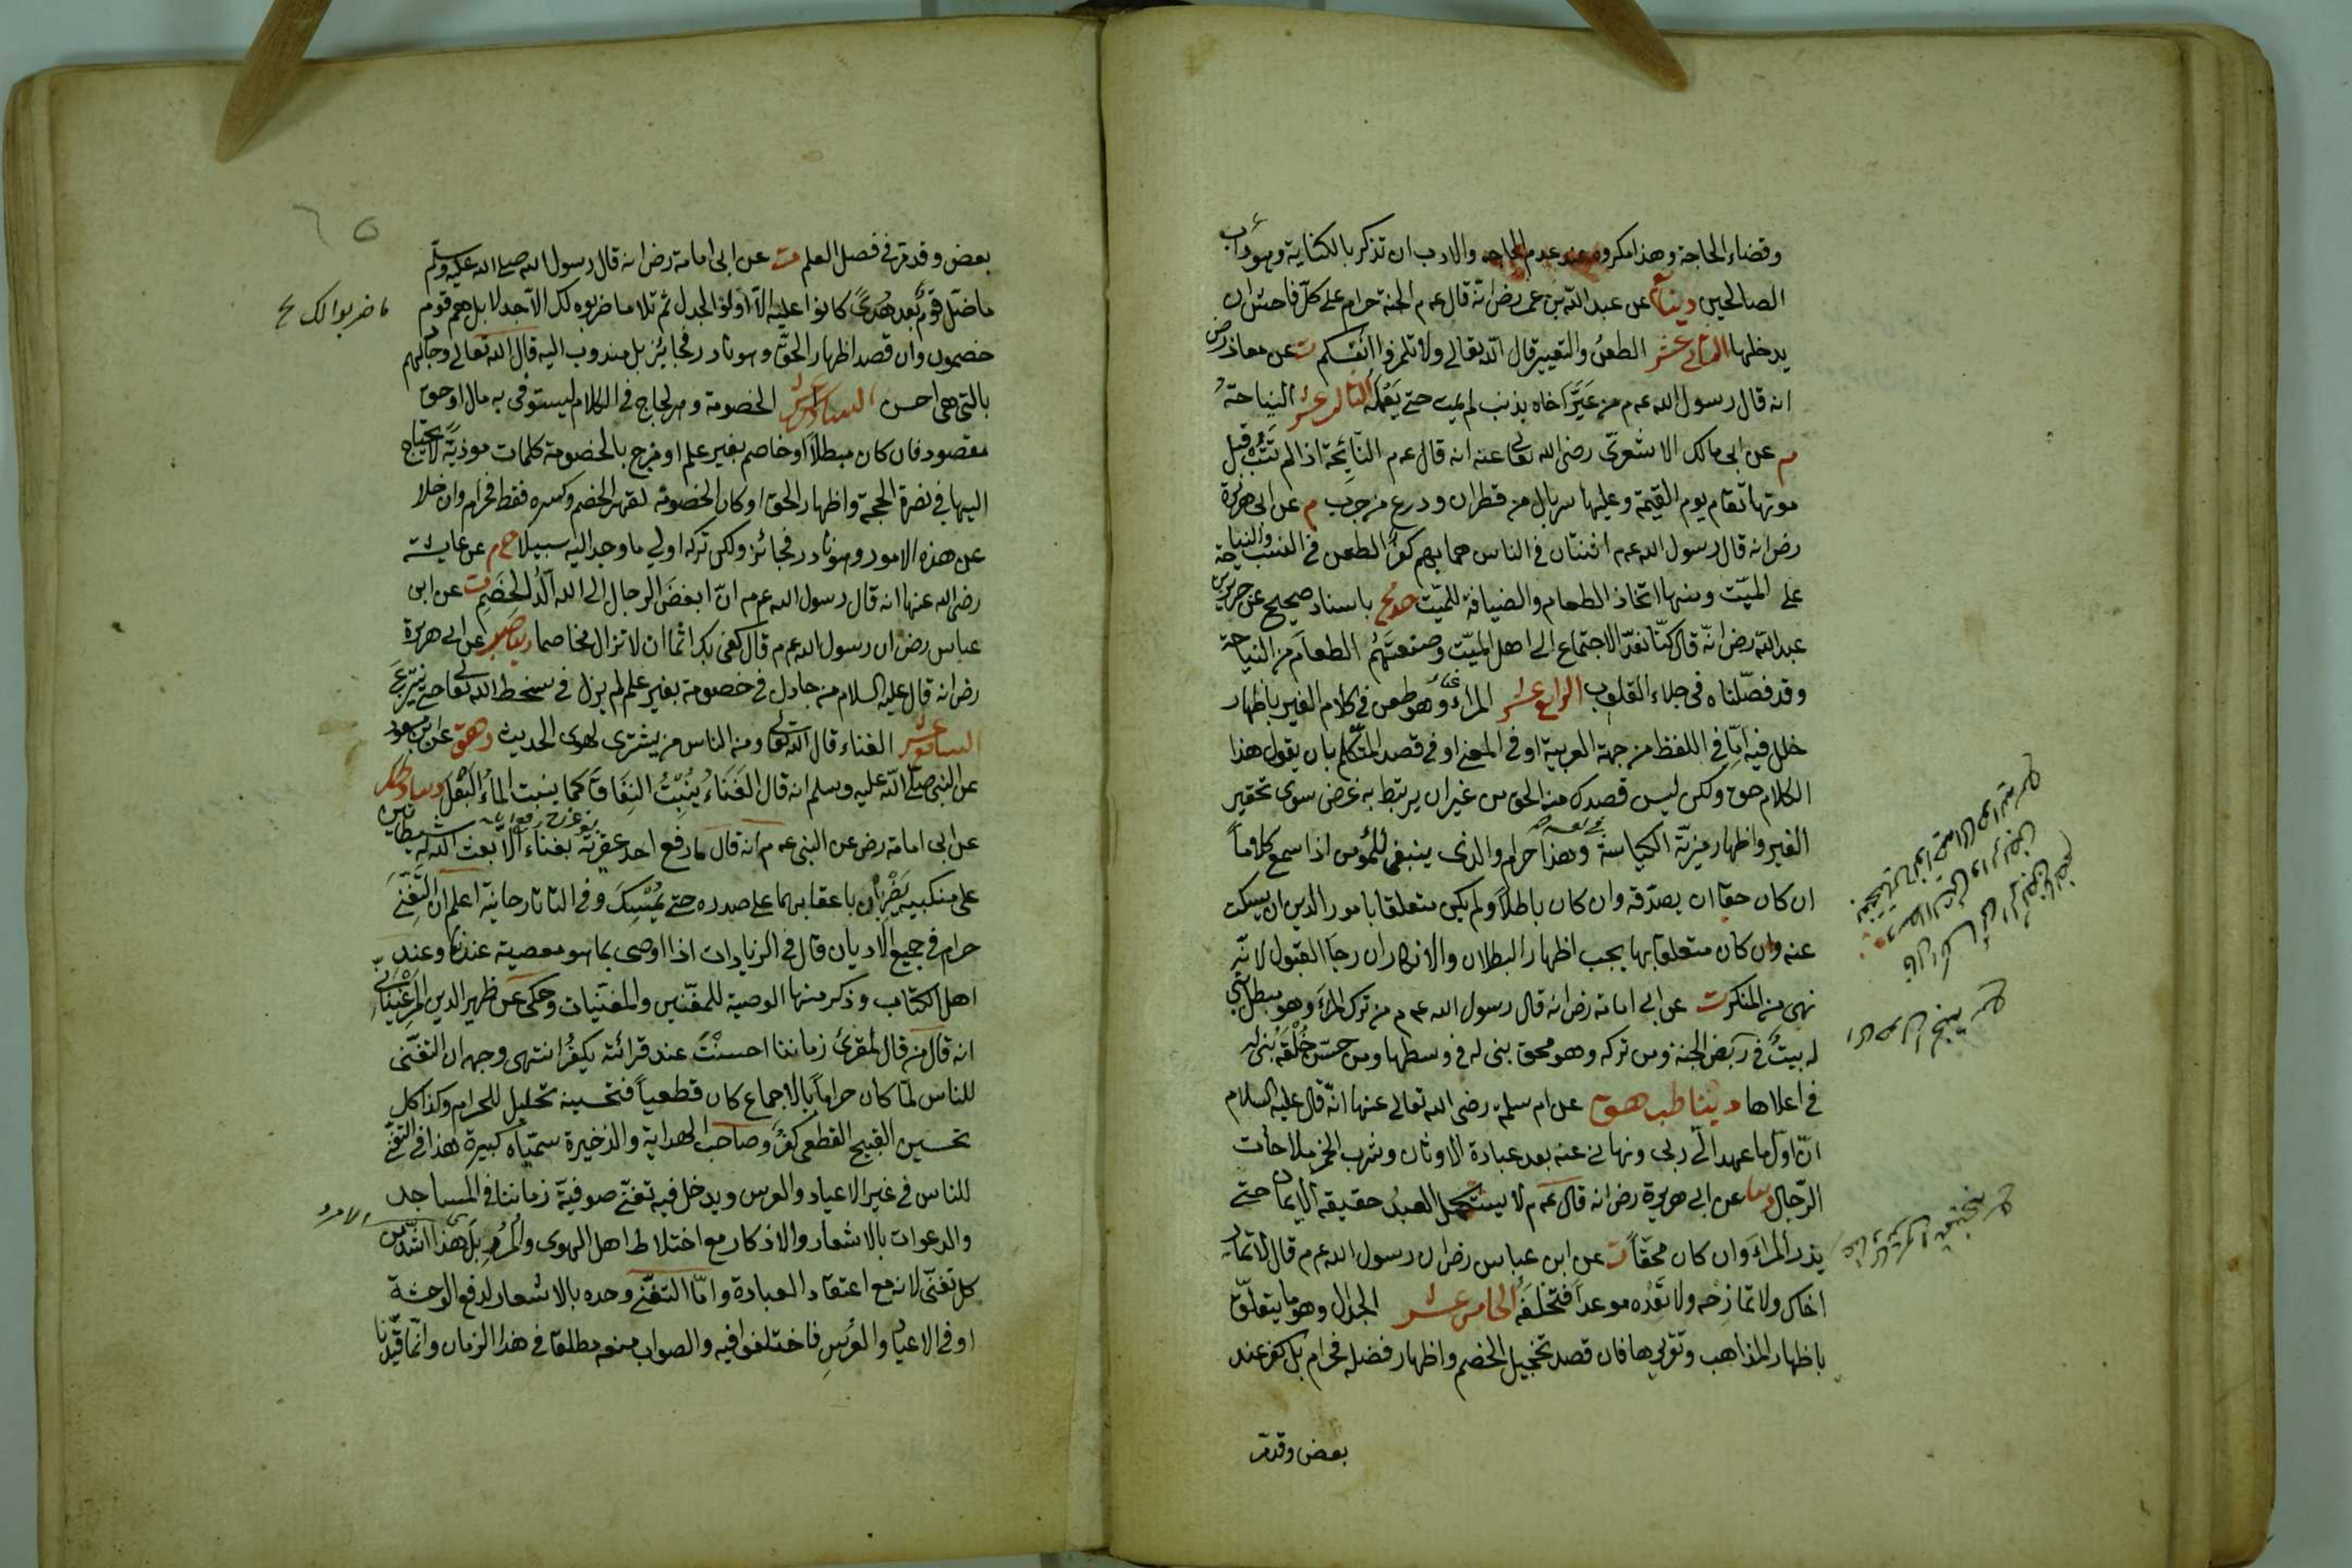 وقضاء الحاجة وهذا مكروه عند عدم الحاجة والادب ان تذكر بالكناية وهو دأب
الصالحين دنيا عن عبد الله بن عمر رض انه قال عم الجنة حرام على كل فاحش ان
يدخلها الثانى عشر الطعن والتعيير قال الله تعالى ولا تلمزوا انفسكم ت عن معاذ رض
انه قال رسول الله عم من عَيَّر اخاه بذنب لم يمت حتى يَعْمَلَه الثالث عشر النياحة
م عن ابى مالك الاشعرى رضى الله تعالى عنه انه قال عم النائحة اذا لم تتب قبل
موتها تقام يوم القيمة وعليها سربال من قطران ودرع من جرب م عن ابى هريرة
رض انه قال رسول الله عم اثنتان فى الناس هما بهم كفر الطعن فى النسب والنياحة
على الميّت ومنها اتخاذ الطعام والضيافة للميّت باسناد صحيح عن جرير بن
عبد الله رض انّه قال كنّا نعدّ الاجتماع الى اهل الميّت وصنعتهم الطعام من النياحة
وقد فصّلناه فى جلاء القلوب الرابع عشر المراء وهو طعن فى كلام الغير باظهار
خلل فيه امّا فى اللفظ من جهة العربية او فى المعنى او فى قصد المتكلم بان يقول هذا
الكلام حق ولكن ليس قصدك منه الحق من غير ان يرتبط به غرض سوى تحقير
الغير واظهار مزيّة الكياسة وهذا حرام والذى ينبغى للمؤمن اذا سمع كلاماً
ان كان حقا ان يصدّقه وان كان باطلاً ولم يكن متعلقا بامور الدين ان يسكت
عنه وان كان متعلقا بها يجب اظهار البطلان والانكار ان رجا القبول لانّه
نهى من المنكر ت عن ابى امامة رض انه قال رسول الله عم من ترك المراء وهو مبطل بنى
له بيتٌ فى رَبَض الجنة ومن تركه وهو محق بنى له فى وسطها ومن حسّن خُلْقَه بُنى له
فى اعلاها دنيا طب هق عن ام سلمة رضى الله تعالى عنها انّه قال عليه السلام
انّ اوّل ما عهد الىّ ربى ونهانى عنه بعد عبادة الاوثان وشرب الخمر ملاحات
الرّجال دنيا عن ابى هريرة رض انه قال عم لا يستكمل العبد حقيقة الايمان حتى
يذر المراء وان كان محقّاً ت عن ابن عباس رض ان رسول الله عم قال لا تمار
اخاك ولا تمازحه ولا تَعِدْه موعداً فتخلفه الخامس عشر الجدال وهو ما يتعلّق
باظهار المذاهب وتقريرها فان قصد تخجيل الخصم واظهار فضله فحرام بل كفر عند
بعض وقد مر
بعض وقد مر فى فصل العلم ت عن ابى امامة رض انه قال رسول الله صلى الله عليه وسلم
ما ضلّ قومٌ بعد هُدىً كانوا عليه الا اوتوا الجدل ثم تلا ما ضربوه لك الا جدلا بل هم قوم
ما ضربوا لك
خصمون وان قصد اظهار الحقّ وهو نادر فجائز بل مندوب اليه قال الله تعالى وجادلهم
بالتى هى احسن السادس عشر الخصومة وهو لجاج فى الكلام ليستوفى به مال او حق
مقصود فان كان مبطلاً او خاصم بغير علم او مزج بالخصومة كلمات موذيةً لا يحتاج
اليها فى نصرة الحجة واظهار الحق او كان الخصومة لقهر الخصم وكسره فقط فحرام وان خلا
عن هذه الامور وهو نادر فجائز ولكن تركه اولى ما وجد اليه سبيلا خ م عن عايشة
رضى الله عنها انه قال رسول الله عم انّ ابغض الرجال الى الله الَدُّ الخَصِم ت عن ابن
عباس رض ان رسول الله عم قال كفى بك اثما ان لا تزال مخاصما عن ابى هريرة
رض انه قال عليه السلام من جادل فى خصومة بغير علم لم يزل فى سخط الله تعالى حتى ينزع
السابع عشر الغناء قال الله تعالى ومن الناس من يشترى لهو الحديث د هق عن ابن مسعود
عن النبى صلى الله عليه وسلم انه قال الغَنَاءُ يُنْبِتُ النِفَاقَ كما ينبت الماءُ البَقْل
عن ابى امامة رض عن النبى عم انه قال ما رفع احد عقيرته بغناء الا بعث الله له شيطانين
على منكبيه يَضْرِبَانِ باعقابهما على صدره حتى يُمْسِكَ وفى التاتارخانية اعلم ان التغنّى
حرام فى جميع الاديان قال فى الزيادات اذا اوصى بما هو معصية عندنا وعند
اهل الكتاب وذكر منها الوصية للمغنّين والمغنّيات وحكى عن ظهير الدين المرغينانى
انه قال من قال لمقرئ زماننا احسنْتَ عند قرائته يكفر انتهى وجهه ان التغنّى
للناس لمّا كان حراماً بالاجماع كان قطعياً فتحسينه تحليل للحرام وكذا كل
تحسين القبيح القطعى كفر وصاحب الهداية والذخيرة سمّياه كبيرة هذا فى التغنى
للناس فى غير الاعياد والعرس ويدخل فيه تغنّى صوفيّة زماننا فى المساجد
والدعوات بالاشعار والاذكار مع اختلاط اهل الهوى والمُرْد بل هذا اشدّ من
كل تغنّى لانه مع اعتقاد العبادة وامّا التغنّى وحده بالاشعار لدفع الوحشة
او فى الاعياد والعُرْسِ فاختلفوا فيه والصواب منعه مطلقا فى هذا الزمان وانّما قيّدنا